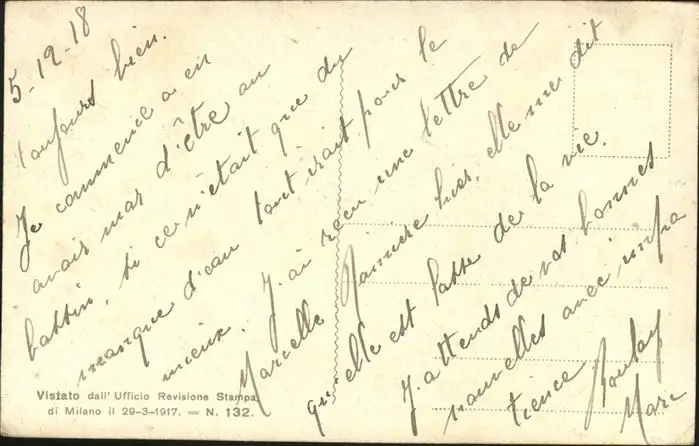 5-12-18
toujours bien.
Je commence a en
avoir mar d'être au
bassin, si ce n'était que du
manque d'eau tout irait pour le
mieux. J'ai reçu une lettre de
Marcelle Rainière hier, elle me dit
qu'elle est lasse de la vie.
J'attends de vos bonnes
nouvelles avec impa
tience
Marc
Vistato dall' Ufficio Revisione Stampa
di Milano il 29-3-1917. = N. 132.